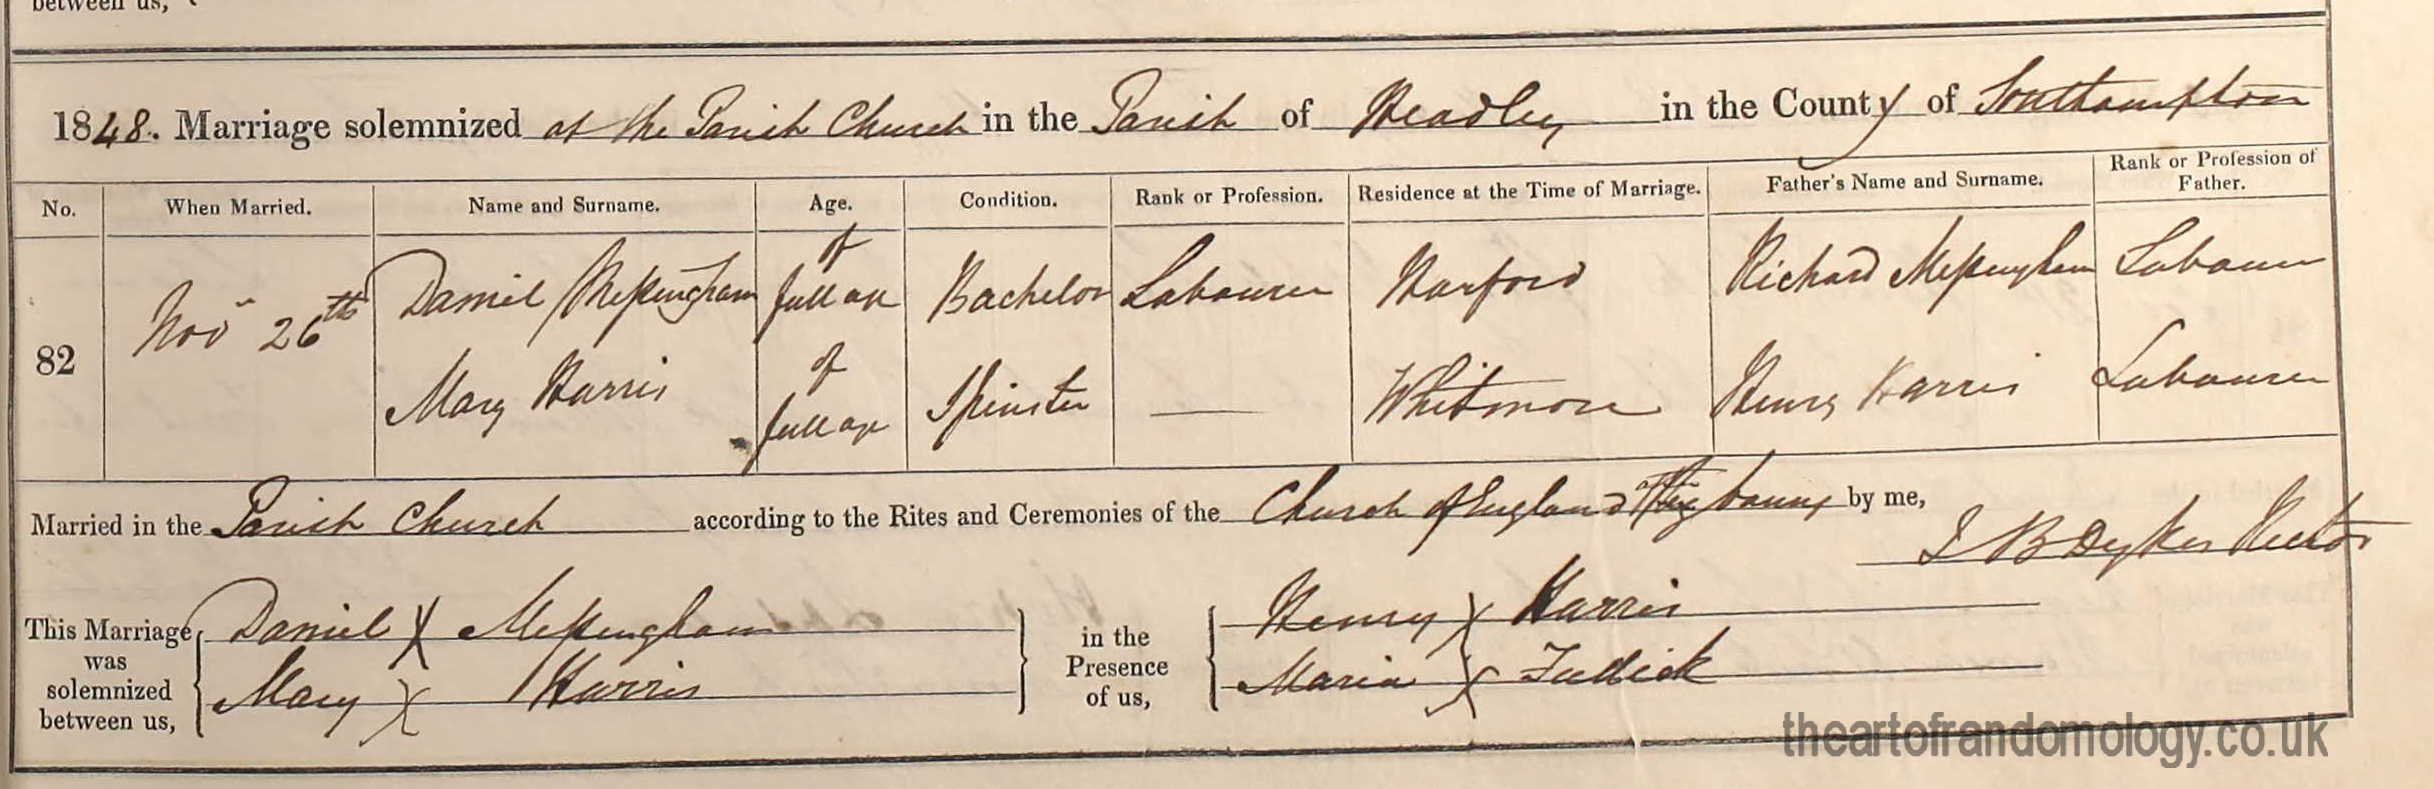 between us,
1848. Marriage solemnized at the Parish Church in the Parish of Headley in the County of Southampton
No. When Married. Name and Surname. Age. Condition. Rank or Profession. Residence at the Time of Marriage. Father's Name and Surname. Rank or Profession of Father.
82 Nov 26th Daniel Messingham of full age Bachelor Labourer Harford Richard Messingham Labourer
Mary Harris of full age Spinster Whitmore Henry Harris Labourer
Married in the Parish Church according to the Rites and Ceremonies of the Church of England by me,
J B Dykes Rector
This Marriage was solemnized between us, Daniel X Messingham in the Presence of us, Henry X Harris
Mary X Harris Maria X Fullick
theartofrandomology.co.uk